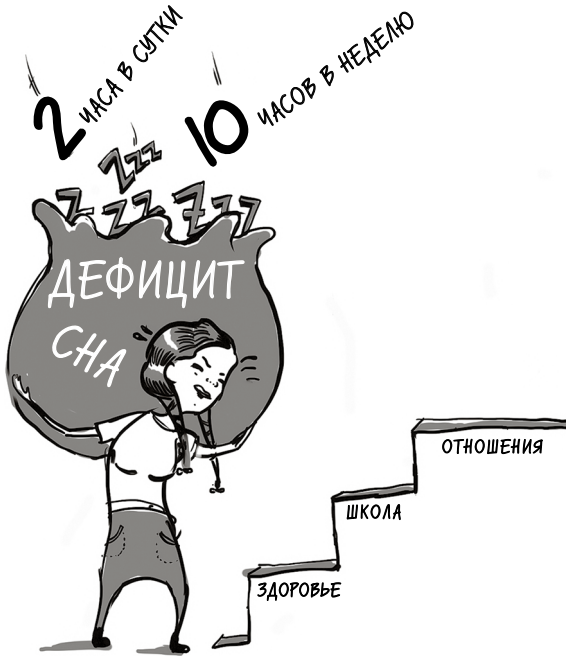 2 ЧАСА В СУТКИ
10 ЧАСОВ В НЕДЕЛЮ
Zzz
Z ZZ ZZZ
ДЕФИЦИТ
СНА
ОТНОШЕНИЯ
ШКОЛА
ЗДОРОВЬЕ